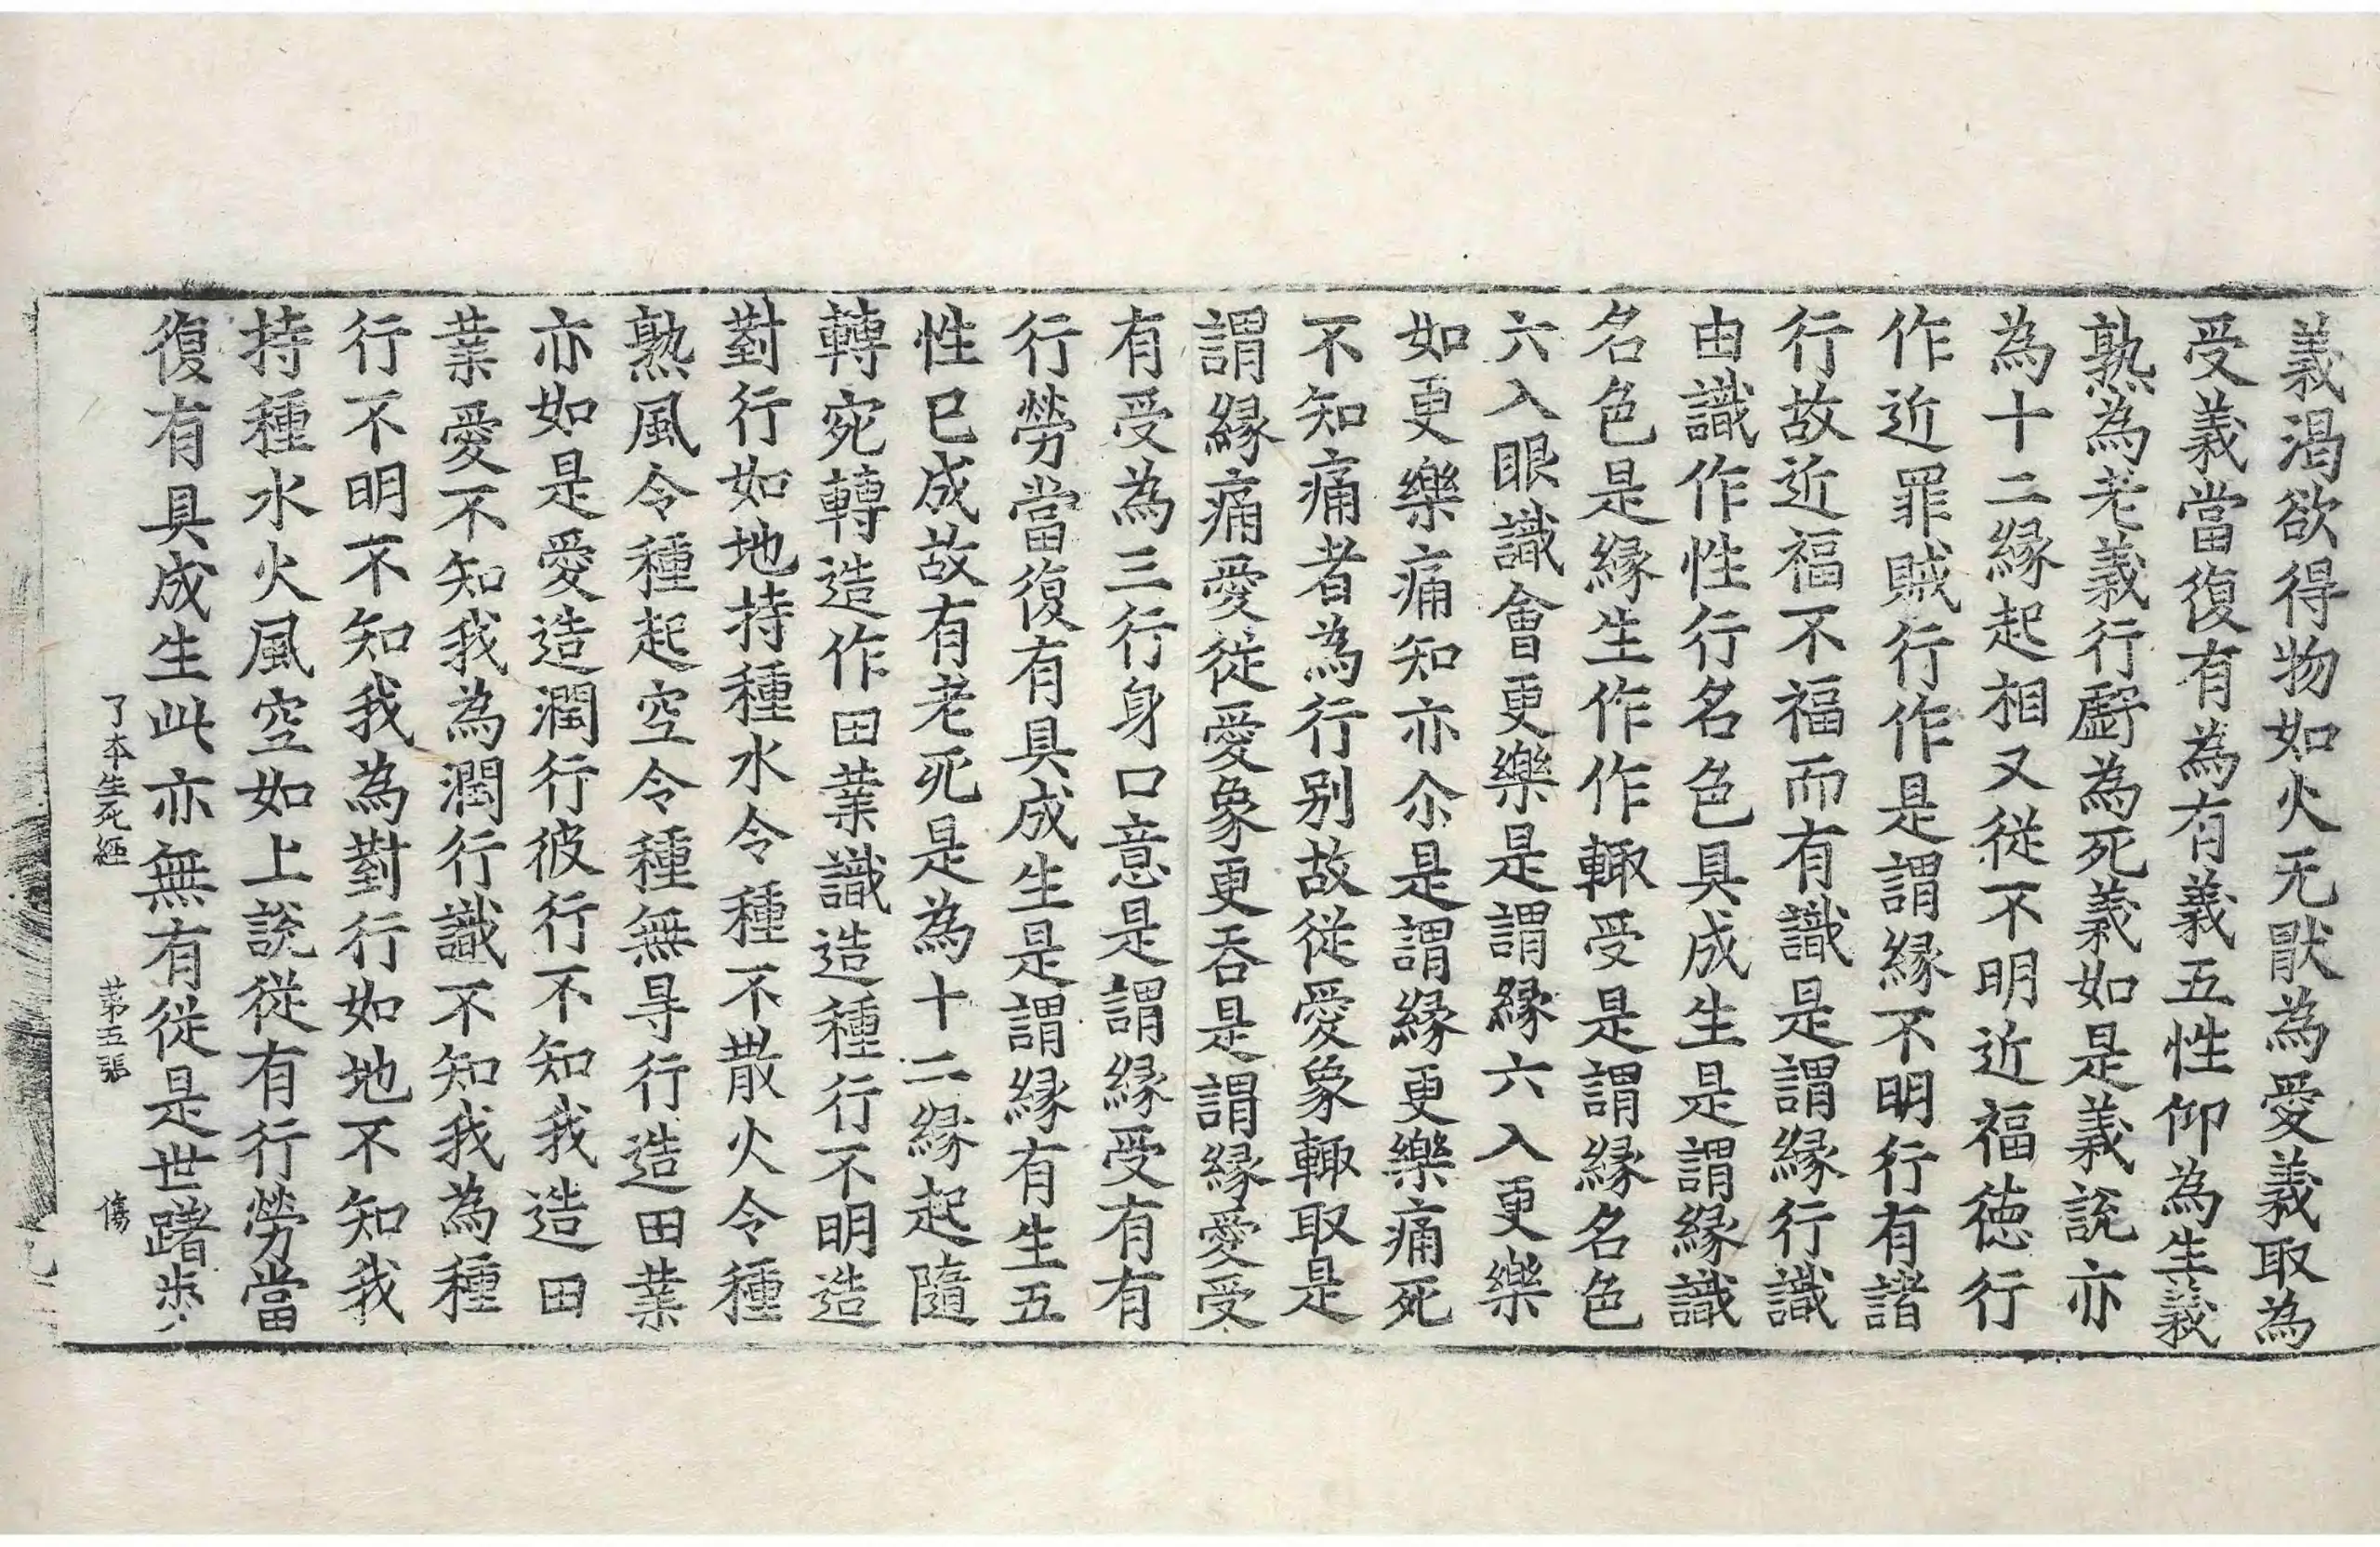 義渴欲得物如火无猒為愛義取為
受義當復有為有義五性仰為生義
熟為老義行㝵為死義如是義說亦
為十二縁起相又從不明近福徳行
作近罪賊行作是謂縁不明行有諸
行故近福不福而有識是謂縁行識
由識作性行名色具成生是謂縁識
名色是縁生作作輙受是謂縁名色
六入眼識會更樂是謂縁六入更樂
如更樂痛知亦尒是謂縁更樂痛死
不知痛者為行别故從愛象輙取是
謂縁痛愛從愛象更吞是謂縁愛受
有受為三行身口意是謂縁受有有
行勞當復有具成生是謂縁有生五
性巳成故有老死是為十二縁起隨
轉宛轉造作田業識造種行不明造
對行如地持種水令種不散火令種
熟風令種起空令種無㝵行造田業
亦如是愛造潤行彼行不知我造田
業愛不知我為潤行識不知我為種
行不明不知我為對行如地不知我
持種水火風空如上說從有行勞當
復有具成生此亦無有從是世躇步
了本生死經 苐五張 傷